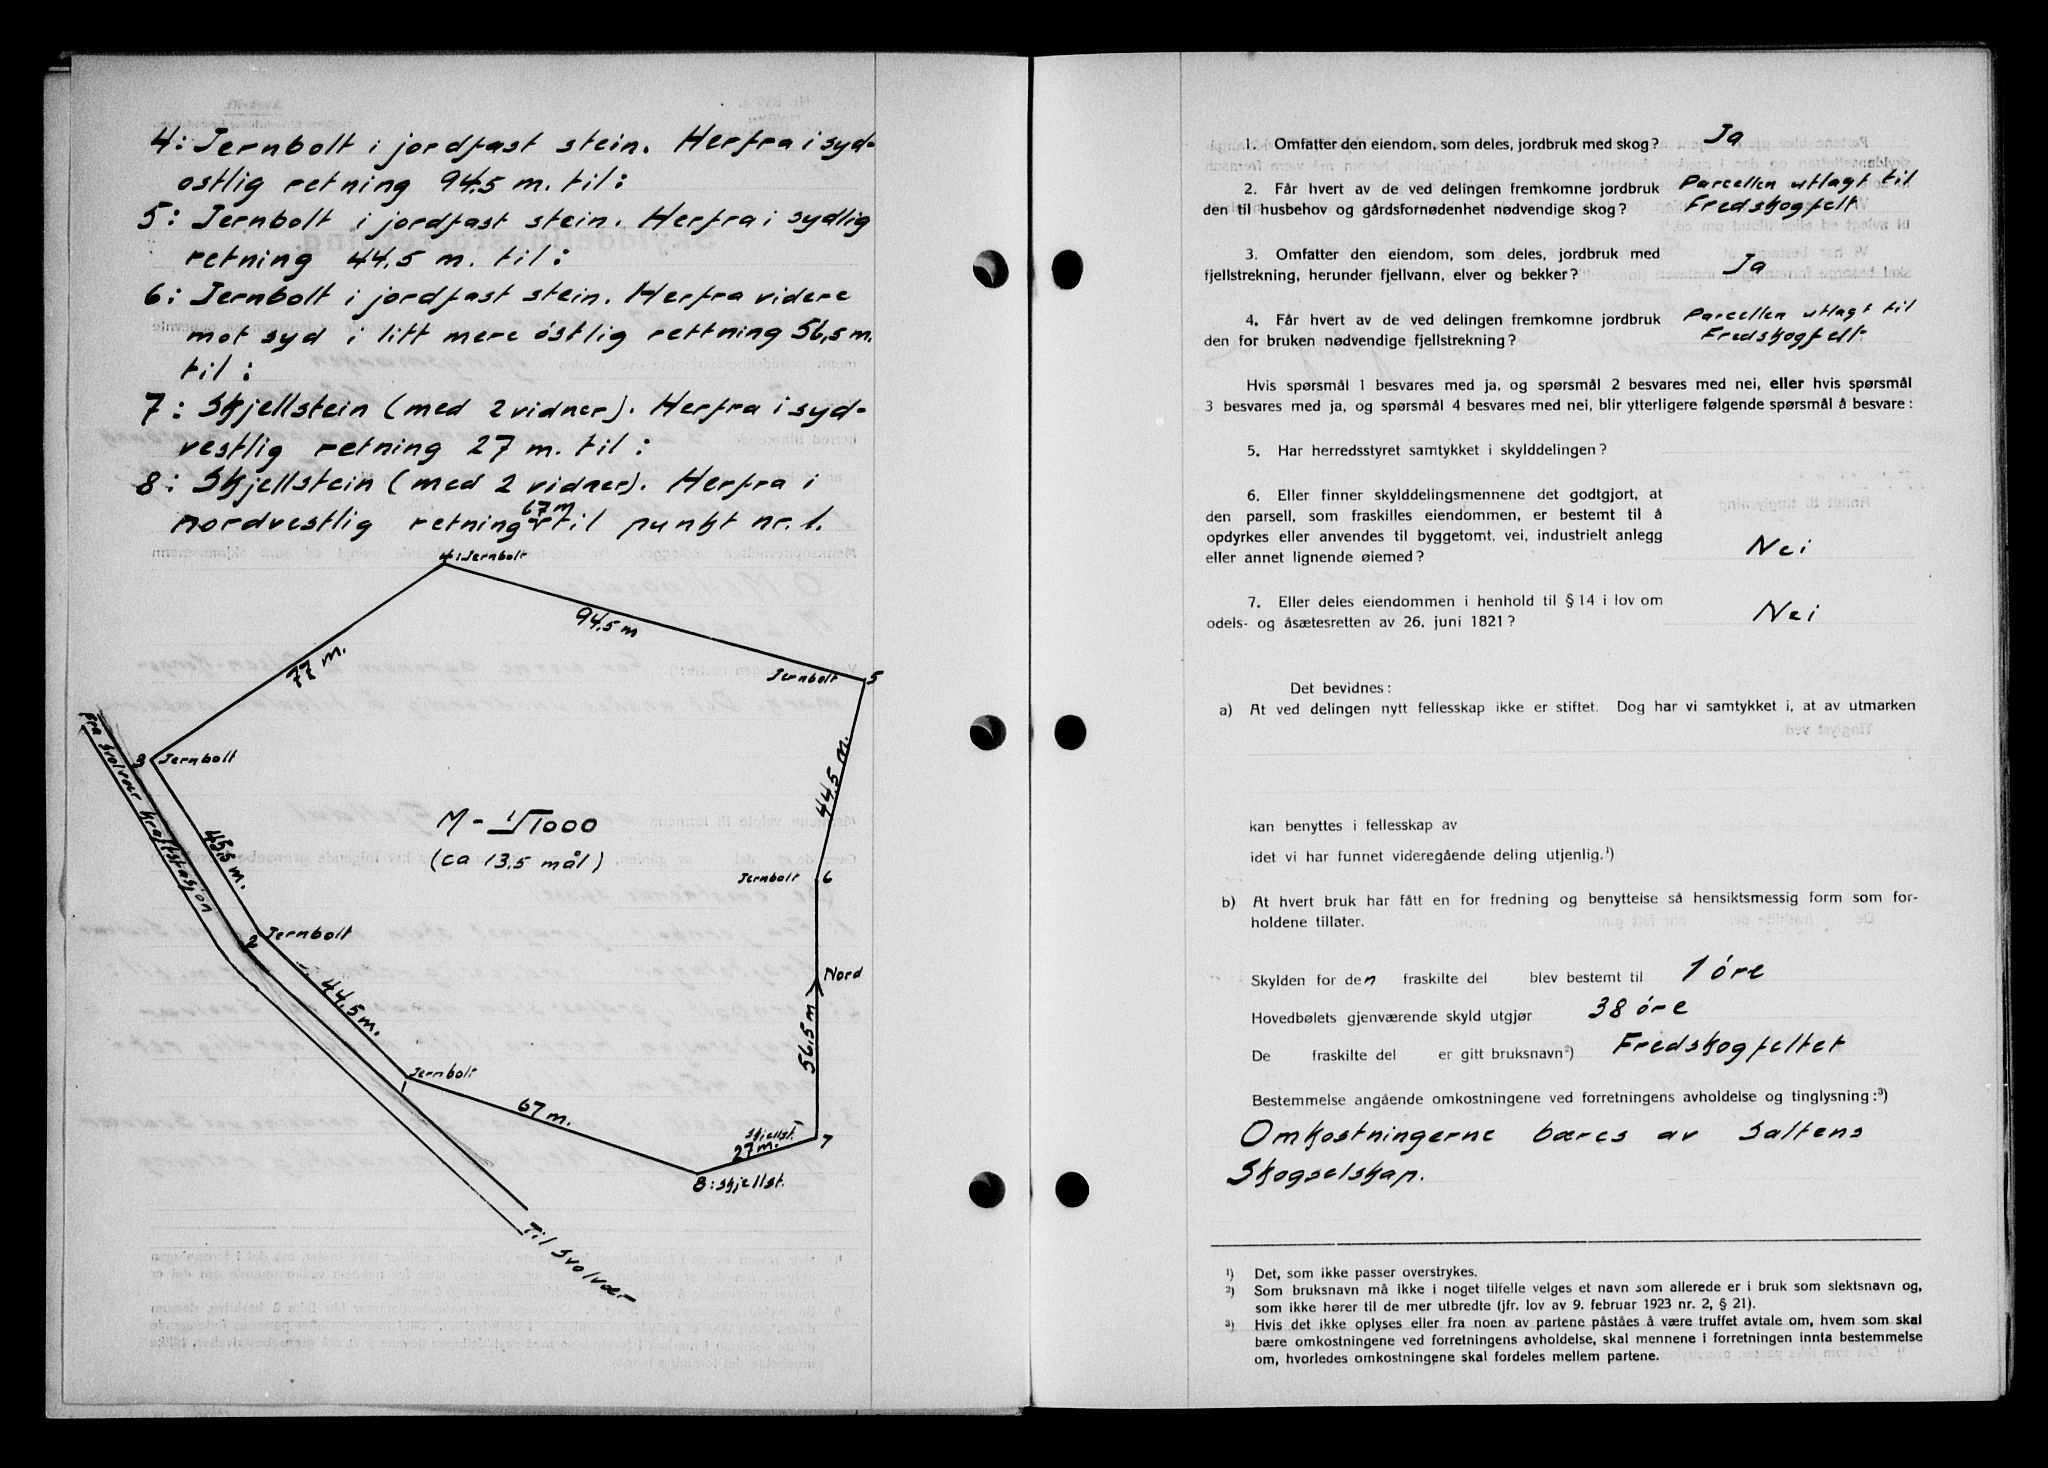 4: Jernbolt i jordfast stein. Herfra i syd-
ostlig retning 94,5 m. til:
5: Jernbolt i jordfast stein. Herfra i sydlig
retning 44,5 m. til:
6: Jernbolt i jordfast stein. Herfra videre
mot syd i litt mere östlig rettning 56,5 m.
til:
7: Skjellstein (med 2 vidner). Herfra i syd-
vestlig retning 27 m. til:
8: Skjellstein (med 2 vidner). Herfra i
nordvestlig retning 67 m. til punkt nr. 1.
4: Jernbolt
94,5 m
77 m.
Jernbolt 5
Fra Svolvær Kraftstasjon
3 Jernbolt
44,5 m.
45,5 m.
M - 1/1000
(ca 13,5 mål)
Jernbolt 6
2 Jernbolt
Nord
44,5 m.
56,5 m
Jernbolt
1
67 m.
Skjellst.
27 m.
7
8: skjellst.
Til Svolvær
1. Omfatter den eiendom, som deles, jordbruk med skog? Ja
2. Får hvert av de ved delingen fremkomne jordbruk Parcellen utlagt til
den til husbehov og gårdsfornødenhet nødvendige skog? Fredskogfelt
3. Omfatter den eiendom, som deles, jordbruk med
fjellstrekning, herunder fjellvann, elver og bekker? Ja
4. Får hvert av de ved delingen fremkomne jordbruk Parcellen utlagt til
den for bruken nødvendige fjellstrekning? Fredskogfelt
Hvis spørsmål 1 besvares med ja, og spørsmål 2 besvares med nei, eller hvis spørsmål
3 besvares med ja, og spørsmål 4 besvares med nei, blir ytterligere følgende spørsmål å besvare:
5. Har herredsstyret samtykket i skylddelingen?
6. Eller finner skylddelingsmennene det godtgjort, at
den parsell, som fraskilles eiendommen, er bestemt til å
opdyrkes eller anvendes til byggetomt, vei, industrielt anlegg
eller annet lignende øiemed? Nei
7. Eller deles eiendommen i henhold til § 14 i lov om
odels- og åsætesretten av 26. juni 1821? Nei
Det bevidnes:
a) At ved delingen nytt fellesskap ikke er stiftet. Dog har vi samtykket i, at av utmarken
kan benyttes i fellesskap av
idet vi har funnet videregående deling utjenlig.¹)
b) At hvert bruk har fått en for fredning og benyttelse så hensiktsmessig form som for-
holdene tillater.
Skylden for den fraskilte del blev bestemt til 1 öre
Hovedbølets gjenværende skyld utgjør 38 öre
De fraskilte del er gitt bruksnavn²) Fredskogfeltet
Bestemmelse angående omkostningene ved forretningens avholdelse og tinglysning:³)
Omkostningerne bæres av Saltens
Skogselskap.
¹) Det, som ikke passer overstrykes.
²) Som bruksnavn må ikke i noget tilfelle velges et navn som allerede er i bruk som slektsnavn og,
som ikke hører til de mer utbredte (jfr. lov av 9. februar 1923 nr. 2, § 21).
³) Hvis det ikke oplyses eller fra noen av partene påståes å være truffet avtale om, hvem som skal
bære omkostningene ved forretningens avholdelse, skal mennene i forretningen innta bestemmelse
om, hvorledes omkostningene skal fordeles mellem partene.